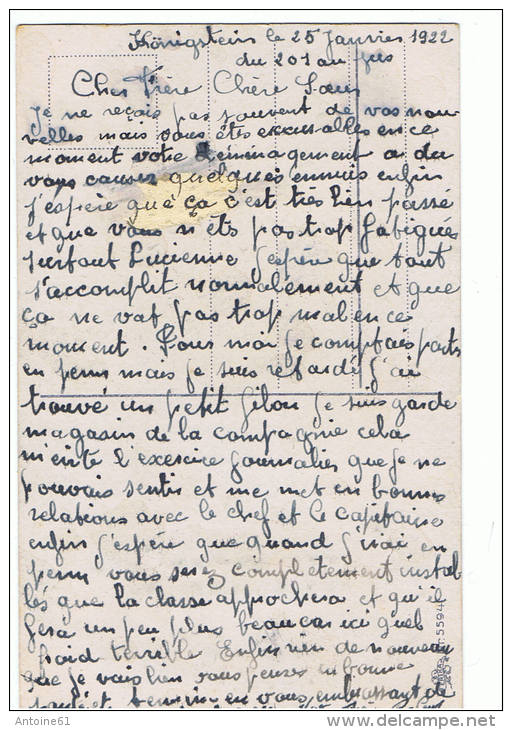 Königstein le 25 Janvier 1922
du 201 au jus
Cher Frère Chère Sœur
Je ne reçois pas souvent de vos nou-
velles mais vous êtes excusables en ce
moment votre déménagement a du
vous causer quelques ennuis enfin
j'espère que ça c'est très bien passé
et que vous n'ets pas trop fatigués
surtout Lucienne j'espère que tout
s'accomplit normalement et que
ça ne vat pas trop mal en ce
moment. Pour moi je comptais partir
en perm mais je suis retardé j'ai
trouvé un petit filon je suis garde
magasin de la compagnie cela
m'évite l'exercice journalier que je ne
pouvais sentir et me met en bonnes
relations avec le chef et le capitaine
enfin j'espère que quand j'irai en
perm vous serez complètement instal
lés que la classe approchera et qu'il
fera un peu plus beau car ici quel
froid terrible Enfin rien de nouveau
que je vais bien vous pensez en bonne
santé et termine en vous embrassant de
5594
Antoine61